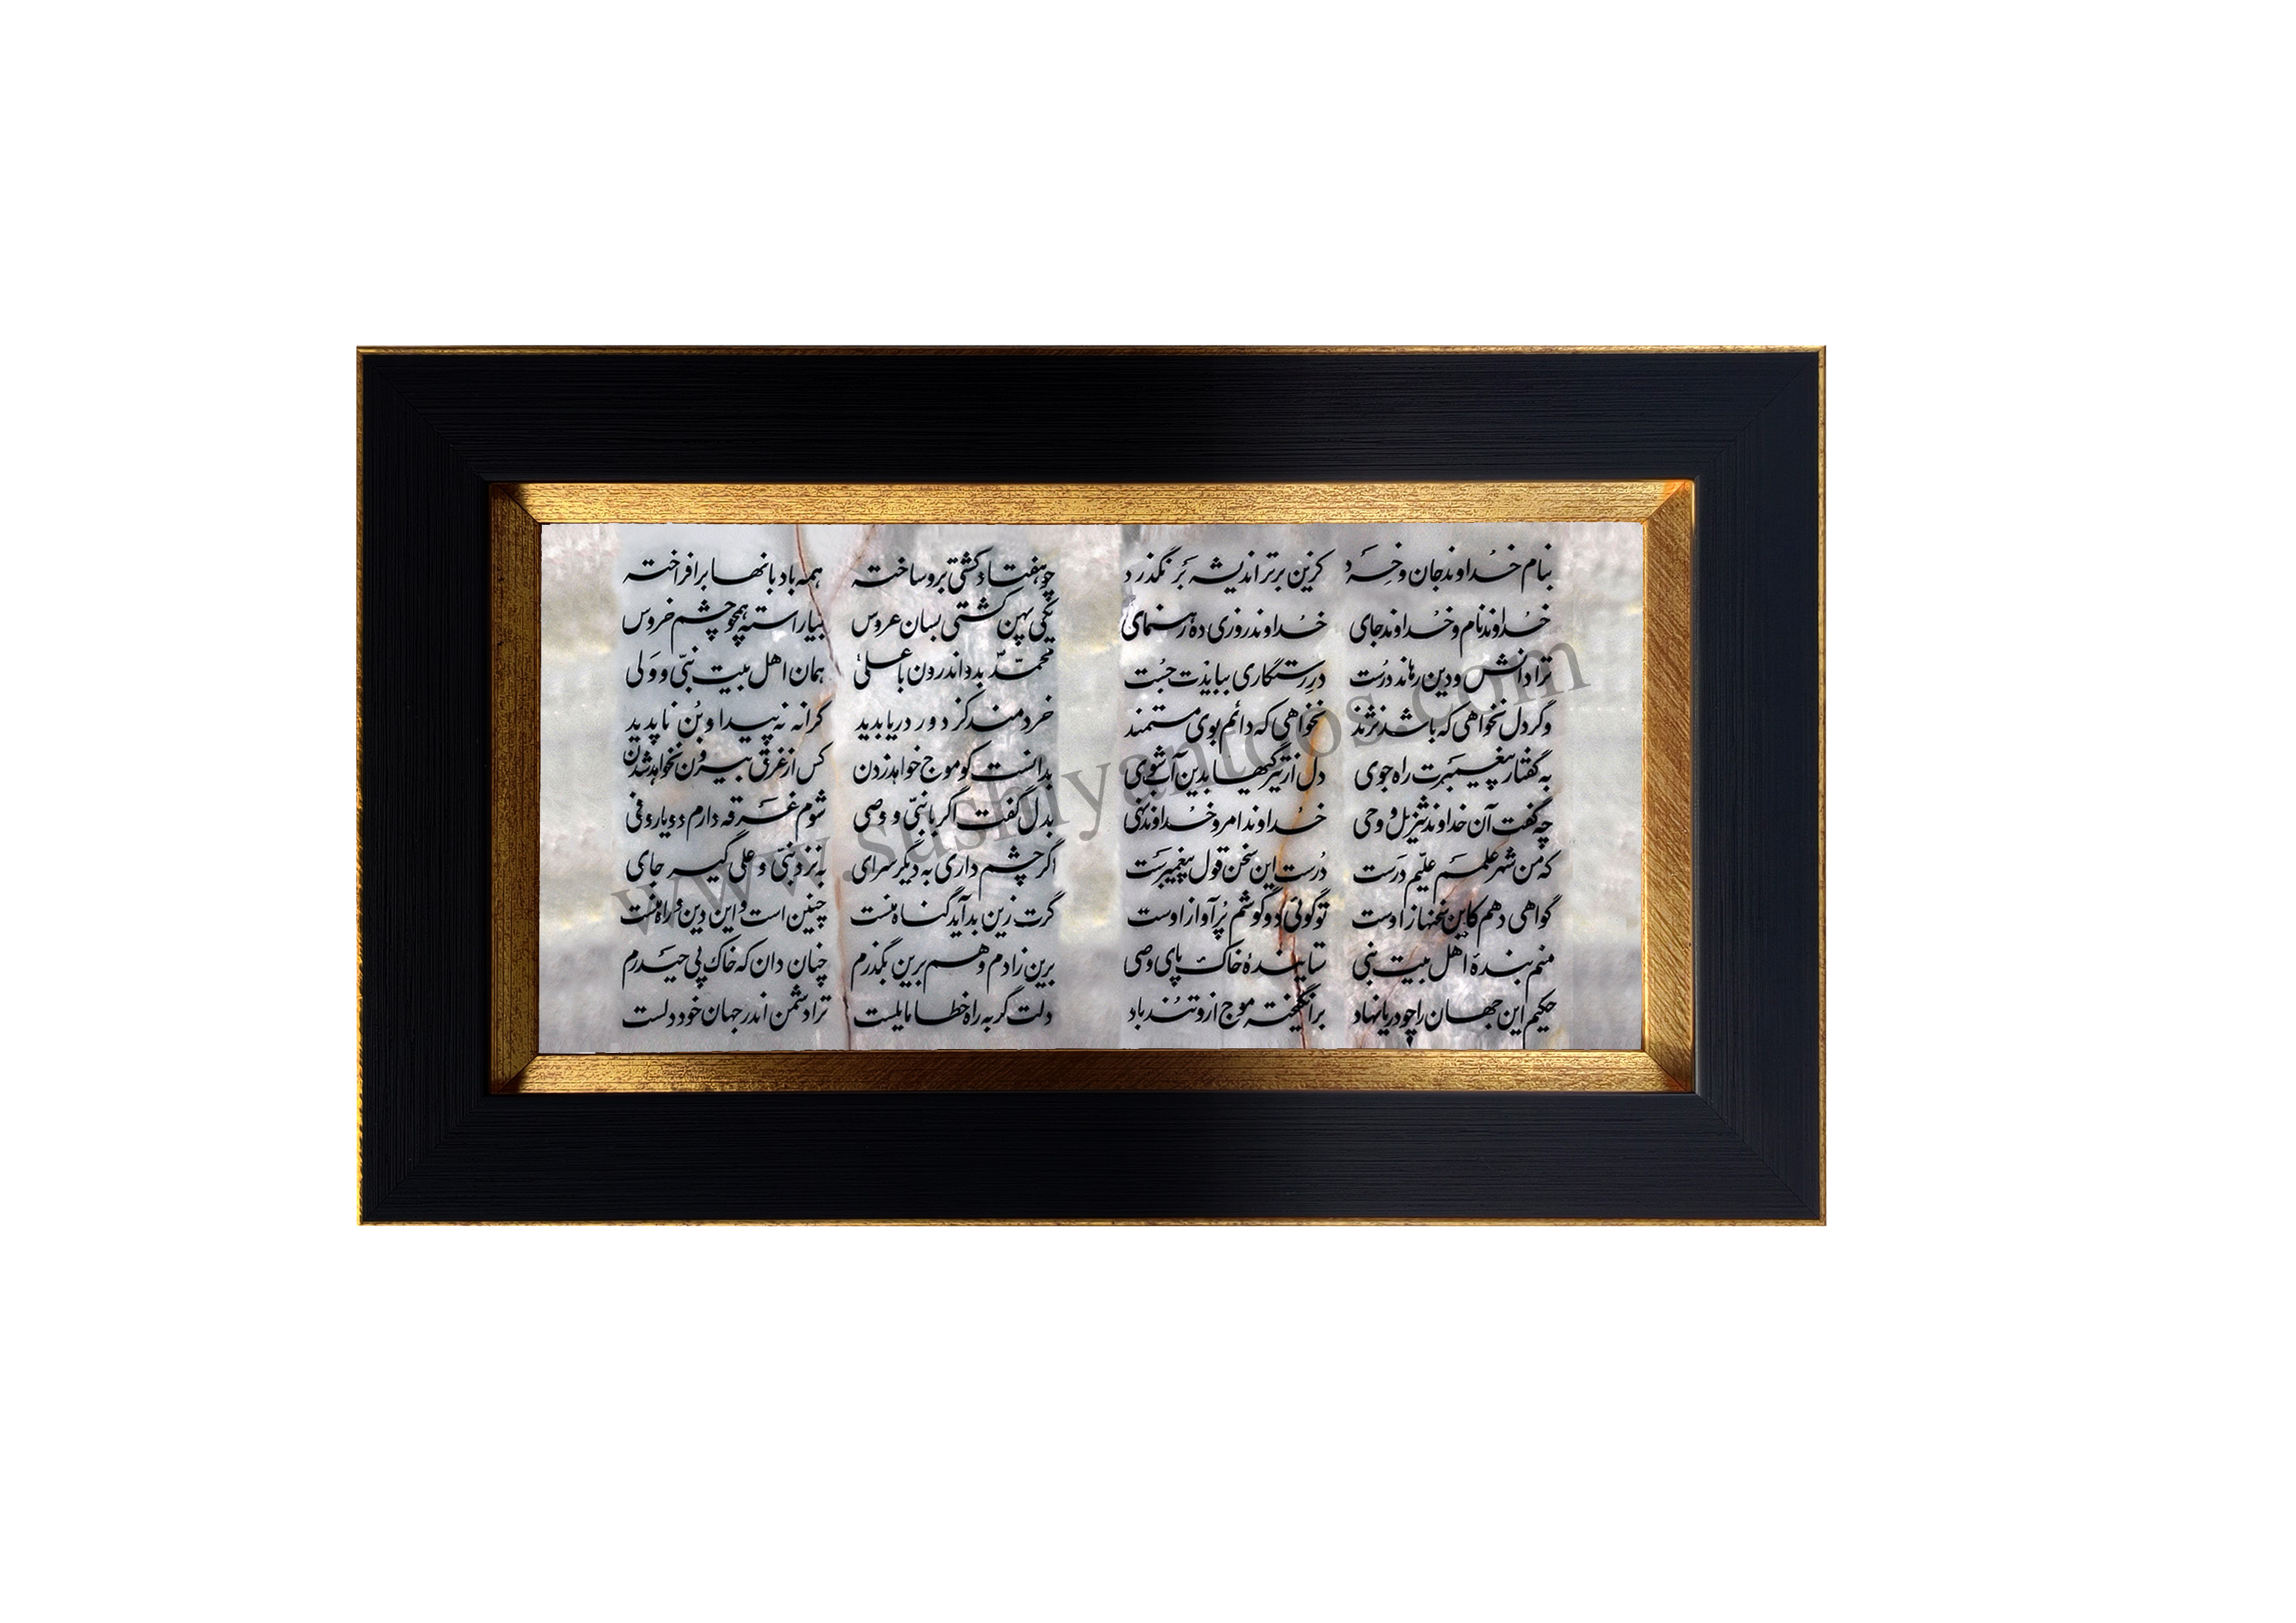 بنام خداوند جان و خرد کزین برتر اندیشه بر نگذرد
خداوند نام و خداوند جای خداوند روزی ده رهنمای
ترا دانش و دین رهاند درست در رستگاری ببایدت جست
وگر دل نخواهی که باشد نژند نخواهی که دائم بوی مستمند
به گفتار پیغمبرت راه جوی دل از تیرگیها بدین آب شوی
چه گفت آن خداوند تنزیل و وحی خداوند امر و خداوند نهی
که من شهر علمم علیّم دَرست دُرست این سخن قول پیغمبرست
گواهی دهم کاین سخنها ز اوست تو گوئی دو گوشم پُر آواز اوست
منم بندهٔ اهل بیت نبی ستایندهٔ خاک پای وصی
حکیم این جهان را چو دریا نهاد برانگیخته موج ازو تندباد
چو هفتاد کشتی برو ساخته همه بادبانها برافراخته
یکی پهن کشتی بسان عروس بیاراسته همچو چشم خروس
محمّد بدو اندرون با علی همان اهل بیت نبّی و ولی
خردمند کز دور دریا بدید کرانه نه پیدا و بُن ناپدید
بدانست کو موج خواهد زدن کس از غرق بیرون نخواهد شدن
بدل گفت اگر با نبّی و وصی شوم غرقه دارم دو یار وفی
اگر چشم داری به دیگر سرای به نزد نبّی و علی گیر جای
گرت زین بد آید گناه منست چنین است و این دین و راه منست
برین زادم و هم برین بگذرم چنان دان که خاک پی حیدرم
دلت گر به راه خطا مایلست ترا دشمن اندر جهان خود دلست
www.sushiyantoos.com